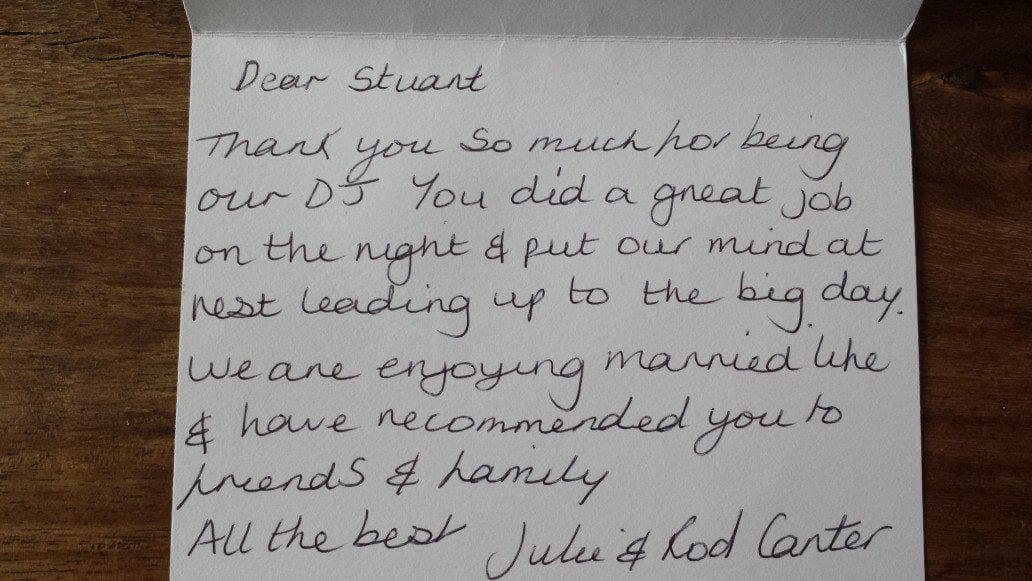 Dear Stuart
Thank you so much for being
our DJ You did a great job
on the night & put our mind at
rest leading up to the big day.
We are enjoying married life
& have recommended you to
friends & family
All the best Julie & Rod Canter